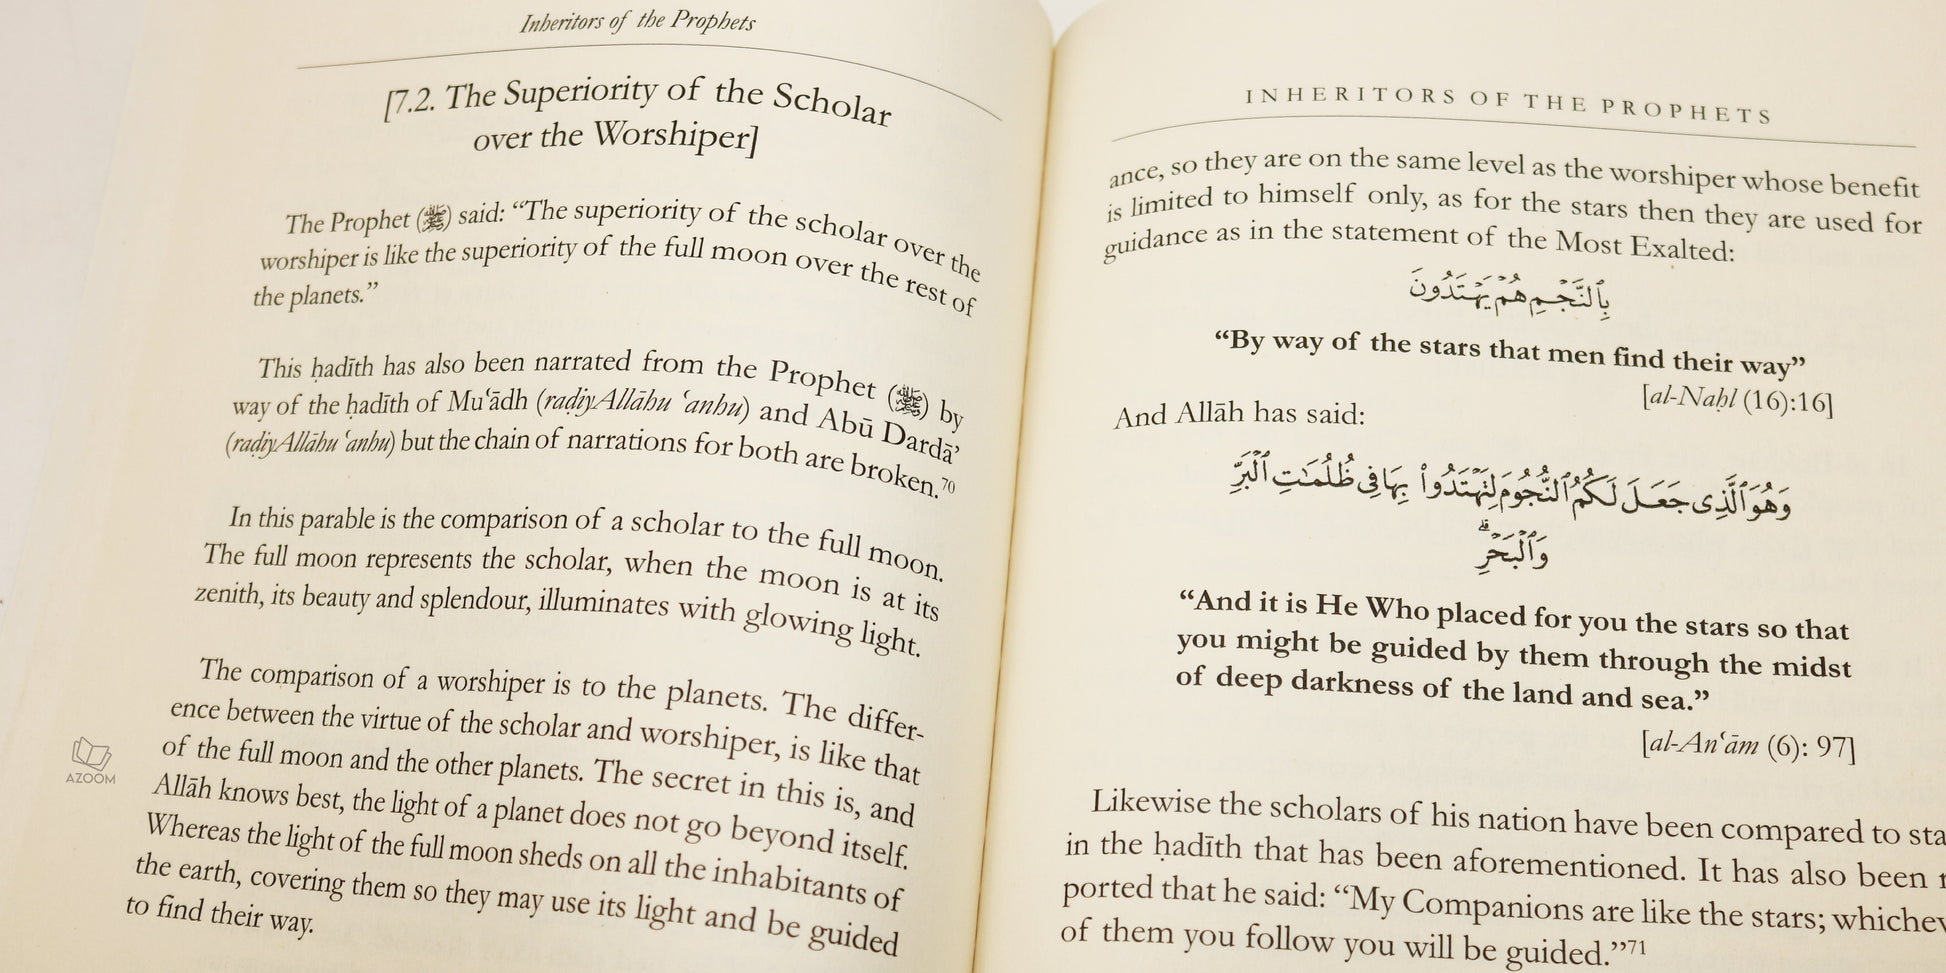 Inheritors of the Prophets
[7.2. The Superiority of the Scholar
over the Worshiper]
The Prophet (ﷺ) said: “The superiority of the scholar over the
worshiper is like the superiority of the full moon over the rest of
the planets.”
This ḥadīth has also been narrated from the Prophet (ﷺ) by
way of the ḥadīth of Mu‘ādh (raḍiyAllāhu ‘anhu) and Abū Dardā’
(raḍiyAllāhu ‘anhu) but the chain of narrations for both are broken.70
In this parable is the comparison of a scholar to the full moon.
The full moon represents the scholar, when the moon is at its
zenith, its beauty and splendour, illuminates with glowing light.
The comparison of a worshiper is to the planets. The differ-
ence between the virtue of the scholar and worshiper, is like that
of the full moon and the other planets. The secret in this is, and
Allāh knows best, the light of a planet does not go beyond itself.
Whereas the light of the full moon sheds on all the inhabitants of
the earth, covering them so they may use its light and be guided
to find their way.
AZOOM
INHERITORS OF THE PROPHETS
ance, so they are on the same level as the worshiper whose benefit
is limited to himself only, as for the stars then they are used for
guidance as in the statement of the Most Exalted:
بِٱلنَّجْمِ هُمْ يَهْتَدُونَ
“By way of the stars that men find their way”
[al-Naḥl (16):16]
And Allāh has said:
وَهُوَ ٱلَّذِى جَعَلَ لَكُمُ ٱلنُّجُومَ لِتَهْتَدُوا۟ بِهَا فِى ظُلُمَـٰتِ ٱلْبَرِّ
وَٱلْبَحْرِ ۗ
“And it is He Who placed for you the stars so that
you might be guided by them through the midst
of deep darkness of the land and sea.”
[al-An‘ām (6): 97]
Likewise the scholars of his nation have been compared to sta
in the ḥadīth that has been aforementioned. It has also been r
ported that he said: “My Companions are like the stars; whichev
of them you follow you will be guided.”71